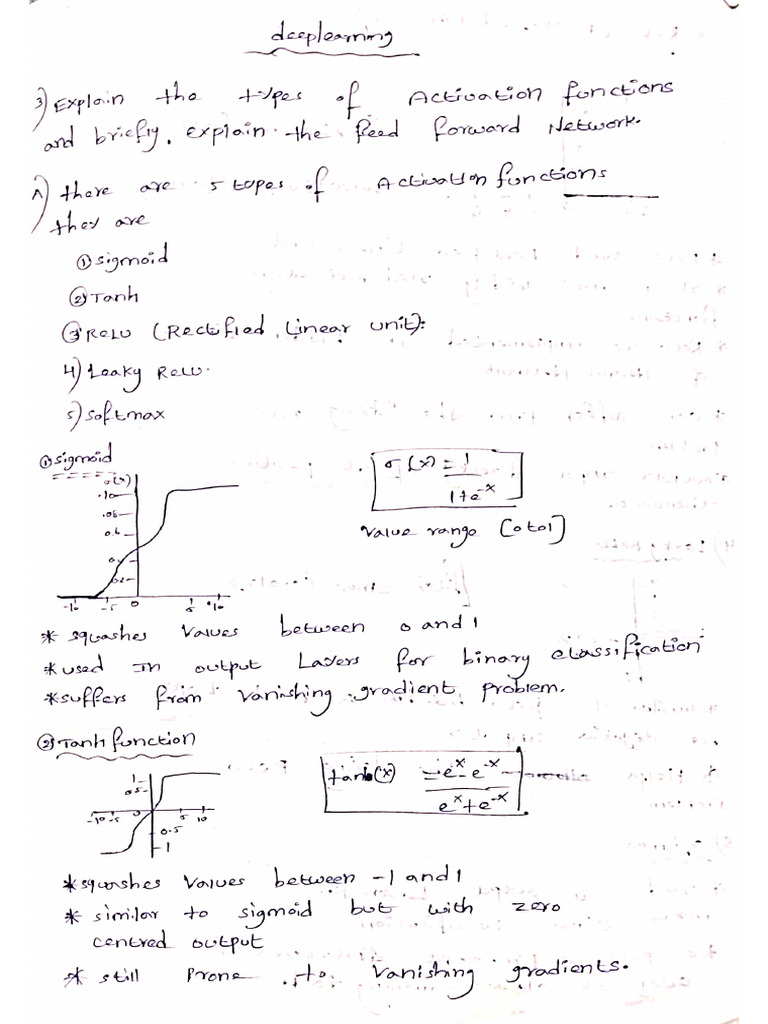 deeplearning
3) Explain the types of Activation functions
and briefly, explain the feed forward Network.
A) there are 5 types of Activation functions
they are
① sigmoid
② Tanh
③ ReLU (Rectified Linear unit):
4) Leaky ReLU.
5) Softmax
① sigmoid
σ(x) = 1 / 1+e^-x
value range [0 to 1]
σ(x)
.10
.08
0.6
0.2
-10 -5 0 5 10
* squashes values between 0 and 1
* used in output Layers for binary classification
* suffers from vanishing gradient problem.
② Tanh function
tanh(x) = e^x - e^-x / e^x + e^-x
1
0.5
-10 -5 0 5 10
0.5
-1
* squashes values between -1 and 1
* similar to sigmoid but with zero
centred output
* still prone to vanishing gradients.